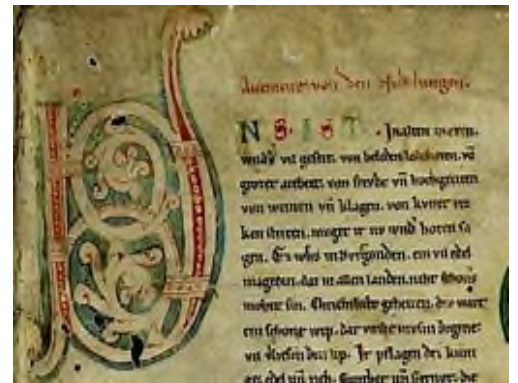 Auenture von den Nibelungen.
NS. IST. In alten meren.
wnd's vil geseit. von heleden lobebæren. võ
grozer arebeit. von frevde vñ hochgeciten
von weinen vñ klagen. von kvner rec
ken striten. mvget ir nv wnd' horen sa
gen. Ez whs in Bvrgonden. ein vil edel
magedin. daz in allen landen. niht schoners
mohte sin. Chriemhilt geheizen. div wart
ein schone wip. dar vmbe mvsin degene
vil verliesen den lip. Ir pflagen dri kunige
edel vñ rich. Gunther vñ Gernot. die